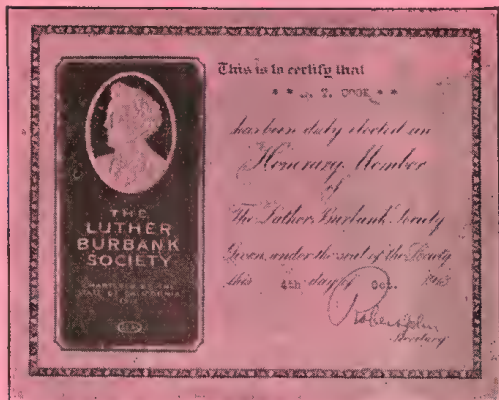 THE
LUTHER
BURBANK
SOCIETY
CHARTERED BY THE
STATE OF CALIFORNIA
This is to certify that
* * T. COOK * *
has been duly elected an
Honorary Member
of
The Luther Burbank Society
Given under the seal of the Society
this 4th day of Oct.
Robert John
Secretary